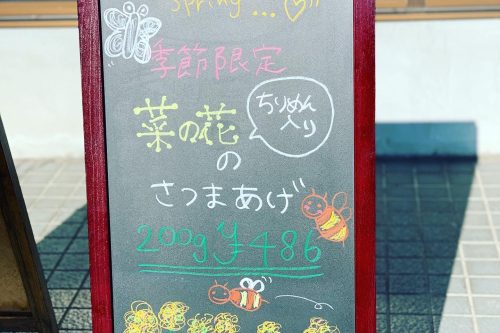 Spring...
季節限定
菜の花
ちりめん
入り
の
さつまあげ
200g ¥486